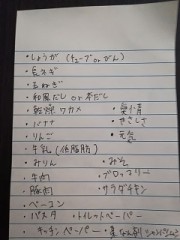 ・しょうが (チューブ or びん)
・長ネギ
・玉ねぎ
・和風だし or 本だし
・乾燥ワカメ ・愛情
・バナナ ・やさしさ
・りんご ・元気
・牛乳 (低脂肪)
・みりん ・みそ
・牛肉 ・ブロッコリー
・豚肉 ・サラダチキン
・ベーコン
・パスタ ・トイレットペーパー
・キッチンペーパー